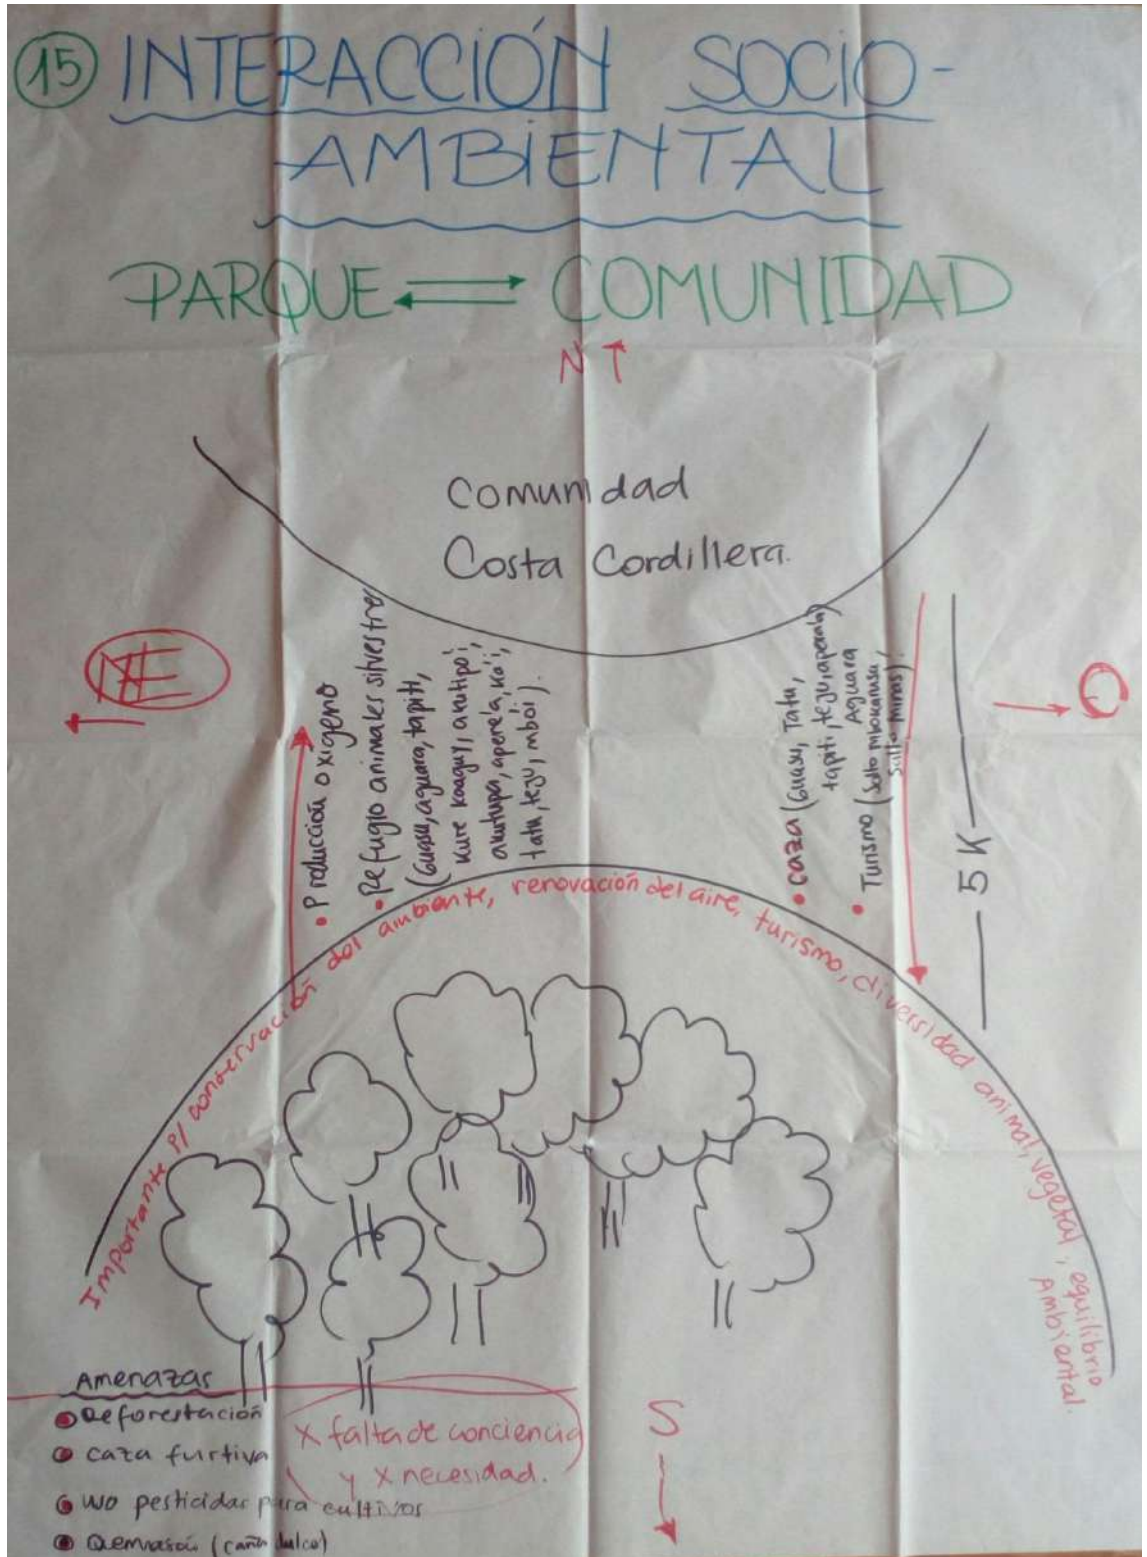 15 INTERACCIÓN SOCIO-
AMBIENTAL
PARQUE COMUNIDAD
N
Comunidad
Costa Cordillera.
E
O
• Producción oxígeno
• Refugio animales silvestre
(Guasu, aguara, tapiti,
kure kaaguy, akutipoi,
akutupa, aperea, ka'i,
tatu, teju, mboi).
• Caza (Guasu, Tatu,
tapiti, teju, aperea)
Aguara
• Turismo (Salto mbokarusu,
Salto minas).
5K
Importante p/ conservación del ambiente, renovación del aire, turismo, diversidad animal, vegetal, equilibrio
Ambiental.
Amenazas
Deforestación
caza furtiva
uso pesticidas para cultivos
Quemasón (caña dulce)
X falta de conciencia
y X necesidad.
S